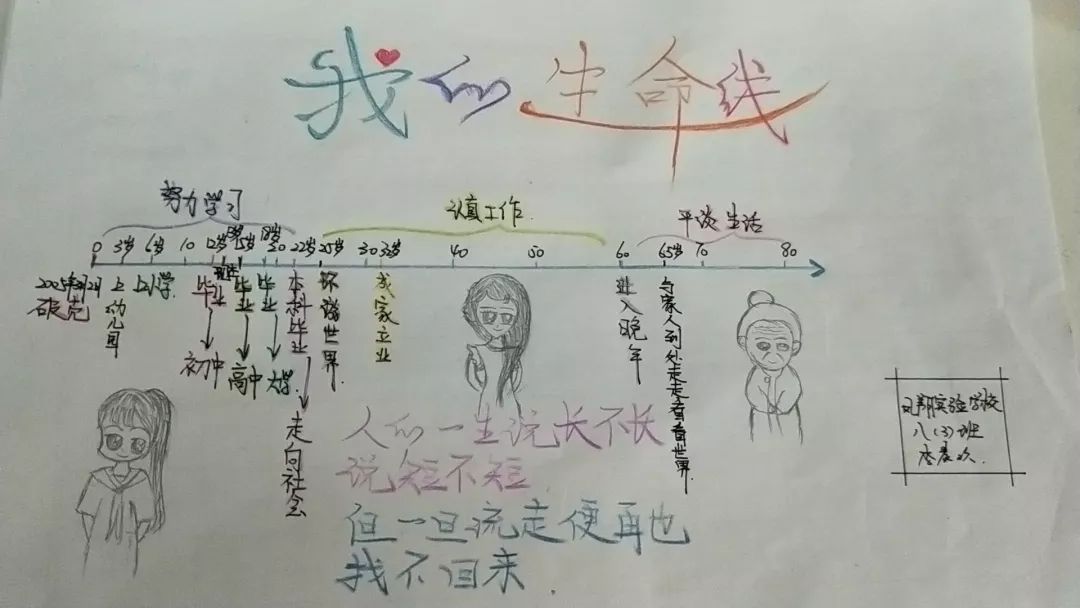 我的生命线
努力学习
认真工作
平淡生活
0 3岁 6岁 10 12岁 15岁 18岁 20 22岁 25岁 30 32岁 40 50 60 65岁 70 80
上幼儿园
上小学
毕业
初中
毕业
高中
毕业
大学
本科毕业
走向社会
环游世界
成家立业
进入晚年
与家人到处走走看看世界
人的一生说长不长
说短不短
但一旦流走便再也
找不回来
凤翔实验学校
八(3)班